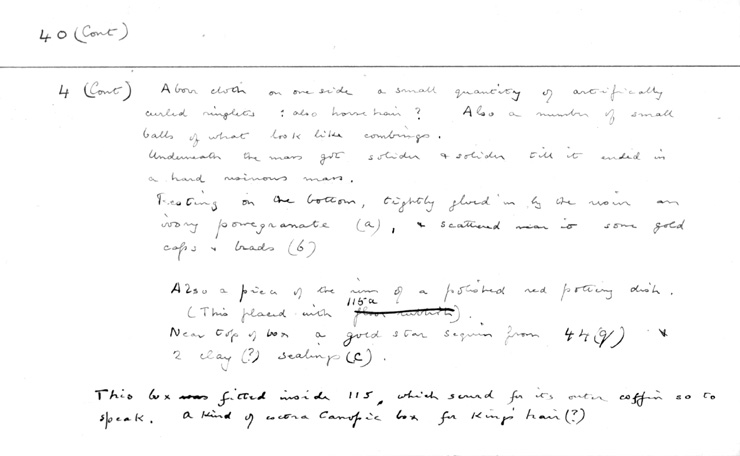 40 (Cont)
4 (Cont) Above cloth on one side a small quantity of artifically
curled ringlets : also horse hair ? Also a number of small
balls of what look like combings.
Underneath the mass got solider & solider till it ended in
a hard resinous mass.
Resting on the bottom, tightly glued in by the resin an
ivory pomegranate (a), & scattered near it some gold
caps & beads (b)
Also a piece of the rim of a polished red pottery dish.
115a
(This placed with floor rubbish).
Near top of box a gold star sequin from 44(q) &
2 clay (?) sealings (c).
This box was fitted inside 115, which served for its outer coffin so to
speak. A kind of extra Canopic box for King's hair (?)